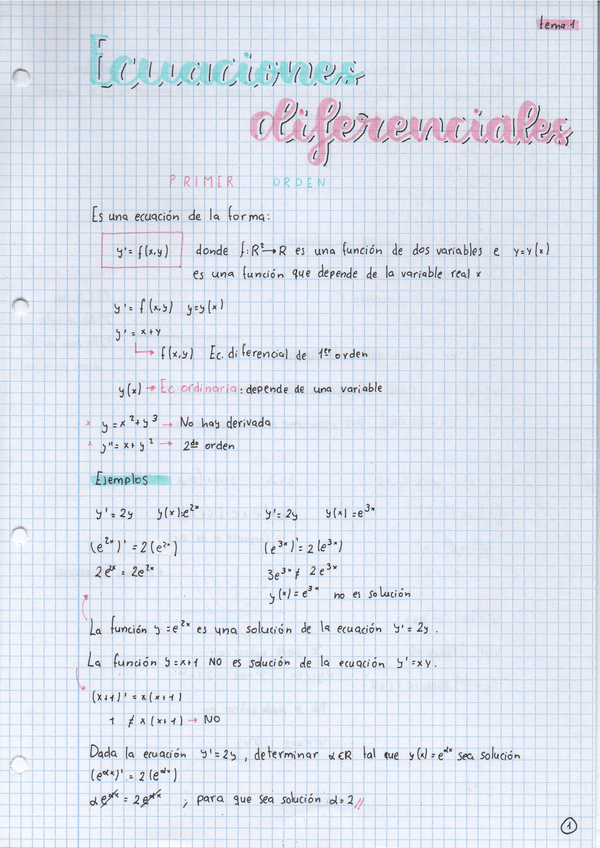 tema 1
Ecuaciones
diferenciales
PRIMER ORDEN
Es una ecuación de la forma:
y' = f(x,y) donde f: R² → R es una función de dos variables e y=y(x)
es una función que depende de la variable real x
y' = f(x,y) y=y(x)
y' = x+y
↳ f(x,y) Ec. diferencial de 1er orden
y(x) → Ec ordinaria: depende de una variable
x y = x² + y³ → No hay derivada
x y'' = x + y² → 2do orden
Ejemplos
y' = 2y y(x)=e^2x y' = 2y y(x) = e^3x
(e^2x)' = 2(e^2x) (e^3x)' = 2(e^3x)
2e^2x = 2e^2x 3e^3x ≠ 2e^3x
y(x) = e^3x no es solución
La función y = e^2x es una solución de la ecuación y' = 2y.
La función y = x+1 NO es solución de la ecuación y' = xy.
(x+1)' = x(x+1)
1 ≠ x(x+1) → NO
Dada la ecuación y' = 2y, determinar α∈R tal que y(x) = e^αx sea solución
(e^αx)' = 2(e^αx)
αe^αx = 2e^αx ; para que sea solución α=2//
1